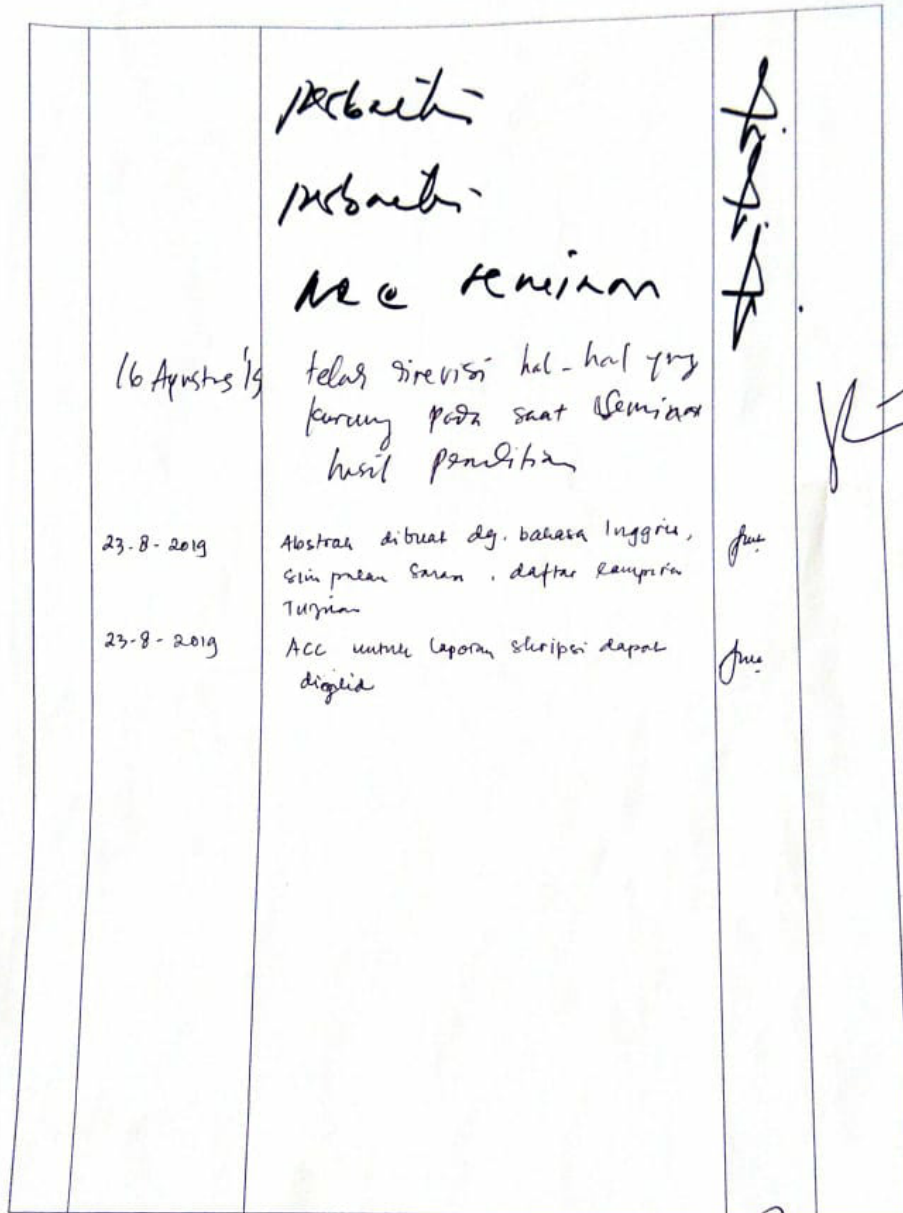 perbaiki
perbaiki
Acc seminar
16 Agustus '19 telah direvisi hal-hal yang
kurang pada saat Seminar
hasil penelitian
23-8-2019 Abstrak dibuat dg. bahasa Inggris,
simpulan saran, daftar lampiran
Tujuan
23-8-2019 ACC untuk laporan skripsi dapat
dijilid